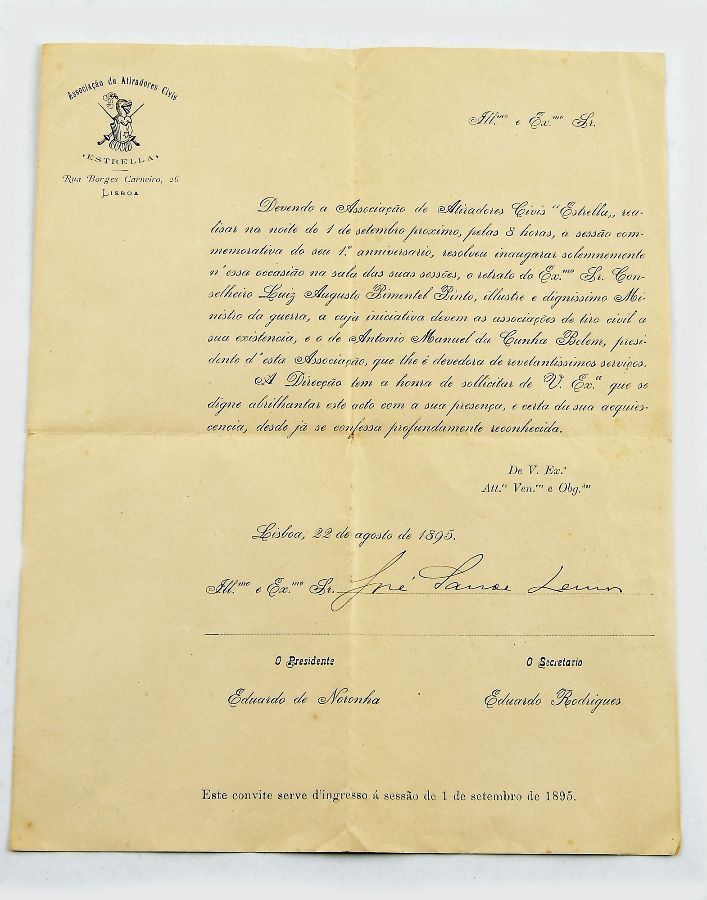 Associação de Atiradores Civis
"ESTRELLA"
Rua Borges Carneiro, 26
LISBOA
Ill.mo e Ex.mo Sr.
Devendo a Associação de Atiradores Civis "Estrella,, rea-
lisar na noite de 1 de setembro proximo, pelas 8 horas, a sessão com-
memorativa do seu 1.º anniversario, resolveu inaugurar solemnemente
n'essa occasião na sala das suas sessões, o retrato do Ex.mo Sr. Con-
selheiro Luiz Augusto Pimentel Pinto, illustre e dignissimo Mi-
nistro da guerra, a cuja iniciativa devem as associações de tiro civil a
sua existencia, e o de Antonio Manuel da Cunha Belem, presi-
dente d'esta Associação, que lhe é devedora de relevantissimos serviços.
A Direcção tem a honra de sollicitar de V. Ex.a que se
digne abrilhantar este acto com a sua presença, e certa da sua acquies-
cencia, desde já se confessa profundamente reconhecida.
De V. Ex.a
Att.os Ven.res e Obg.dos
Lisboa, 22 de agosto de 1895.
Ill.mo e Ex.mo Sr. José Lemos
O Presidente
O Secretario
Eduardo de Noronha
Eduardo Rodrigues
Este convite serve d'ingresso á sessão de 1 de setembro de 1895.